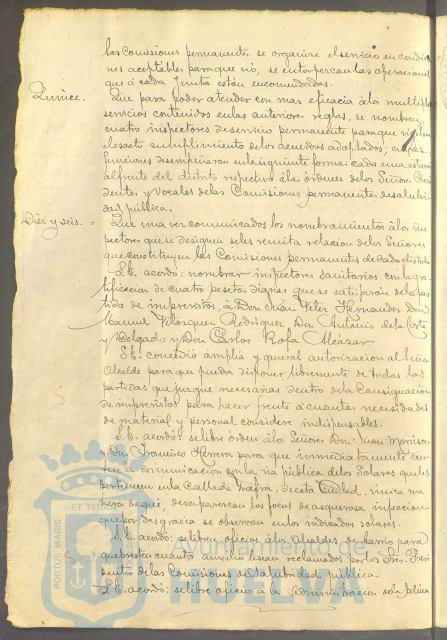 las Comisiones permanentes se organize el servicio en condicio
nes aceptables para que no, se entorpezcan las operaciones
que á cada Junta están encomendadas.
Quince. Que para poder atender con mas eficacia á los multiples
servicios contenidos en las anteriores reglas, se nombren
cuatro inspectores de servicio permanente para que vigilen
el exacto cumplimiento de los acuerdos adoptados; cuyas
funciones desempeñaran en la siguiente forma: cada uno estara
al frente del distrito respectivo á las órdenes de los Señores Presi
dentes y Vocales de las Comisiones permanentes de salubri
dad pública.
Diez y seis. = Que una vez comunicados los nombramientos á los ins
pectores que se designen se les remita relacion de los Señores
que constituyen las Comisiones permanentes de cada distrito
S.E. acordó: nombrar inspectores sanitarios con la gra
tificacion de cuatro pesetas diarias que se satisfarán de la par
tida de imprevistos, á Don Juan Felix Fernandez Don
Manuel Velazquez Rodriguez Don Antonio de la Corte
y Delgado y Don Carlos Rofa Alcazar
S.E. concedió amplia y general autorizacion al Señor
Alcalde para que pueda disponer libremente de todas las
partidas que juzgue necesarias dentro de la Consignacion
de imprevistos para hacer frente á cuantas necesidades
de material y personal considere indispensables.
S.E. acordó: se libre órden á los Señores Don Juan Morrison
y Don Francisco Herrera para que inmediatamente cier
ren la comunicacion con la via pública de los Solares que les
pertenecen en la Calle de Zafra, de esta Ciudad, unica ma
nera de que, desaparezcan los focos de asquerosa infeccion
que por desgracia se observan en los indicados solares.
S.E. acordó: se libren oficios á los Alcaldes de barrio para
que presten cuantos auxilios sean reclamados por los Sres. Presi
dentes de las Comisiones de Salubridad pública.
S.E. acordó; se libre oficio á la Administracion de la
PORTUS MARIS ET TERRAE
Ayuntamiento de
HUELVA